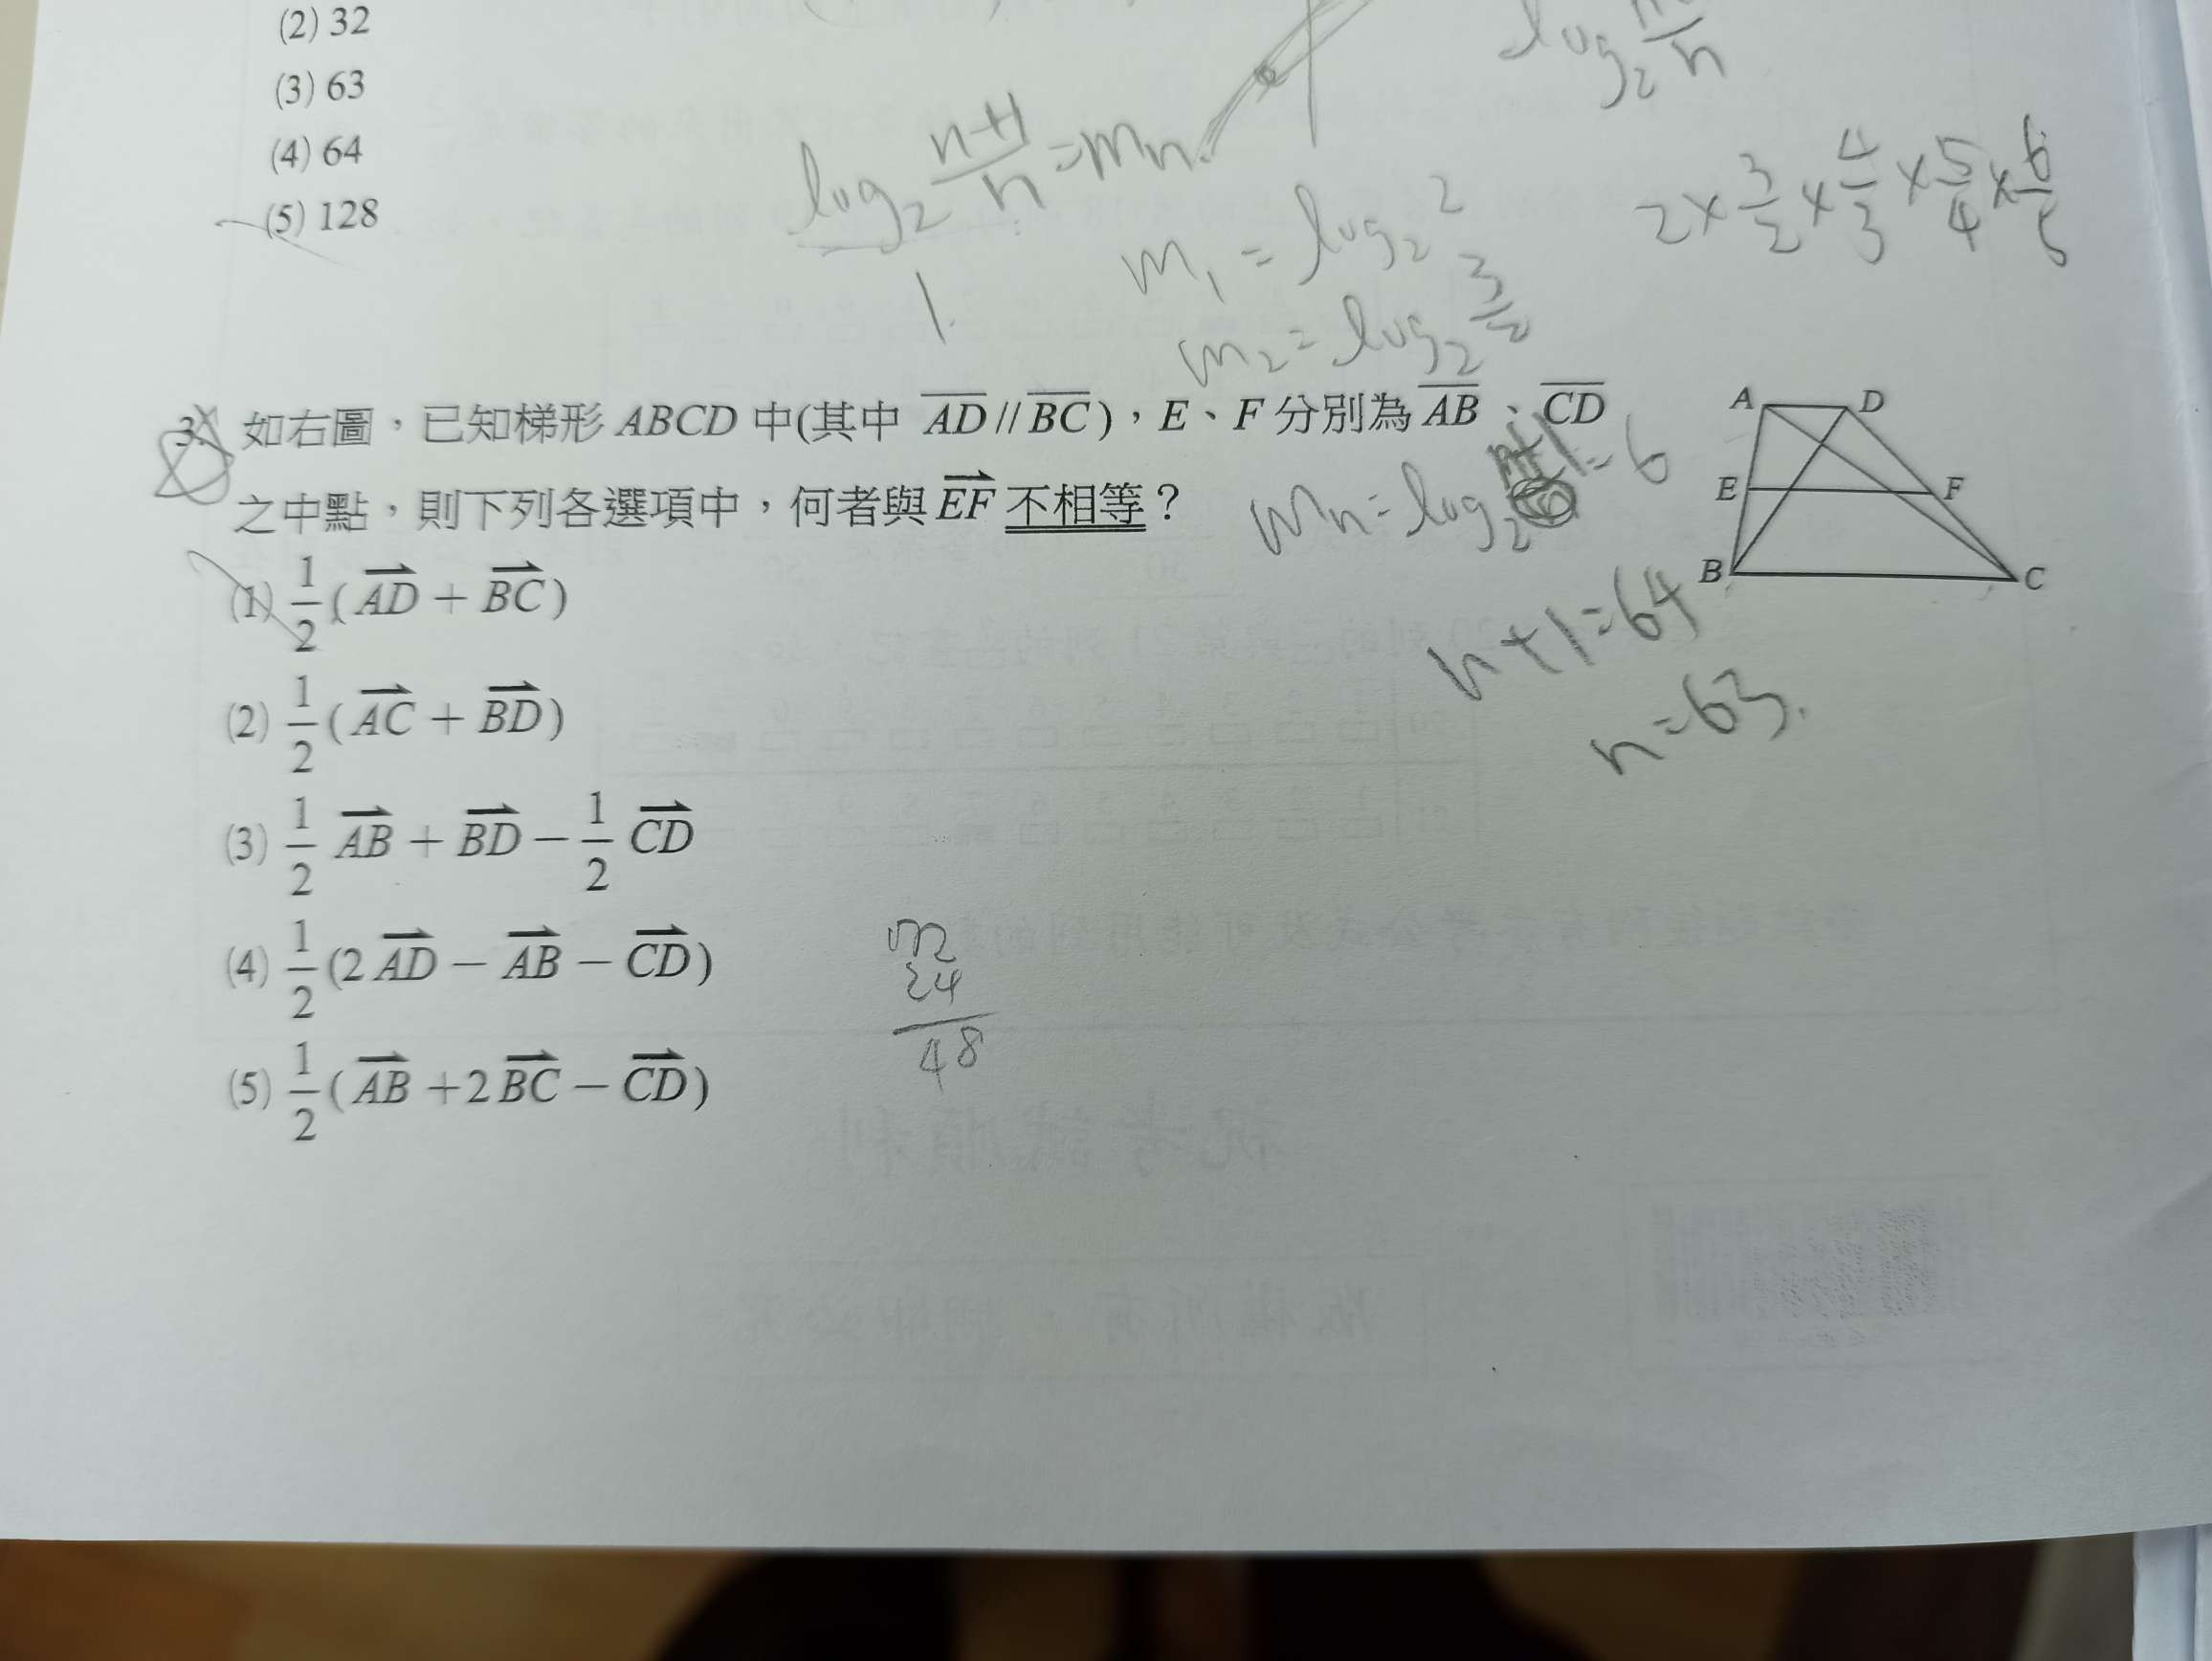 (2) 32
(3) 63
(4) 64
(5) 128
log₂ (n+1)/n = mn.
1.
m₁ = log₂ 2
m₂ = log₂ 3/2
log₂ /n
2 × 3/2 × 4/3 × 5/4 × 6/5
3. 如右圖,已知梯形 ABCD 中(其中 AD // BC),E、F 分別為 AB、CD
之中點,則下列各選項中,何者與 EF 不相等?
mn = log₂ n+1 = 6
n+1=64
n=63.
A D
E F
B C
(1) 1/2 (AD + BC)
(2) 1/2 (AC + BD)
(3) 1/2 AB + BD − 1/2 CD
(4) 1/2 (2 AD − AB − CD)
(5) 1/2 (AB + 2 BC − CD)
24
48